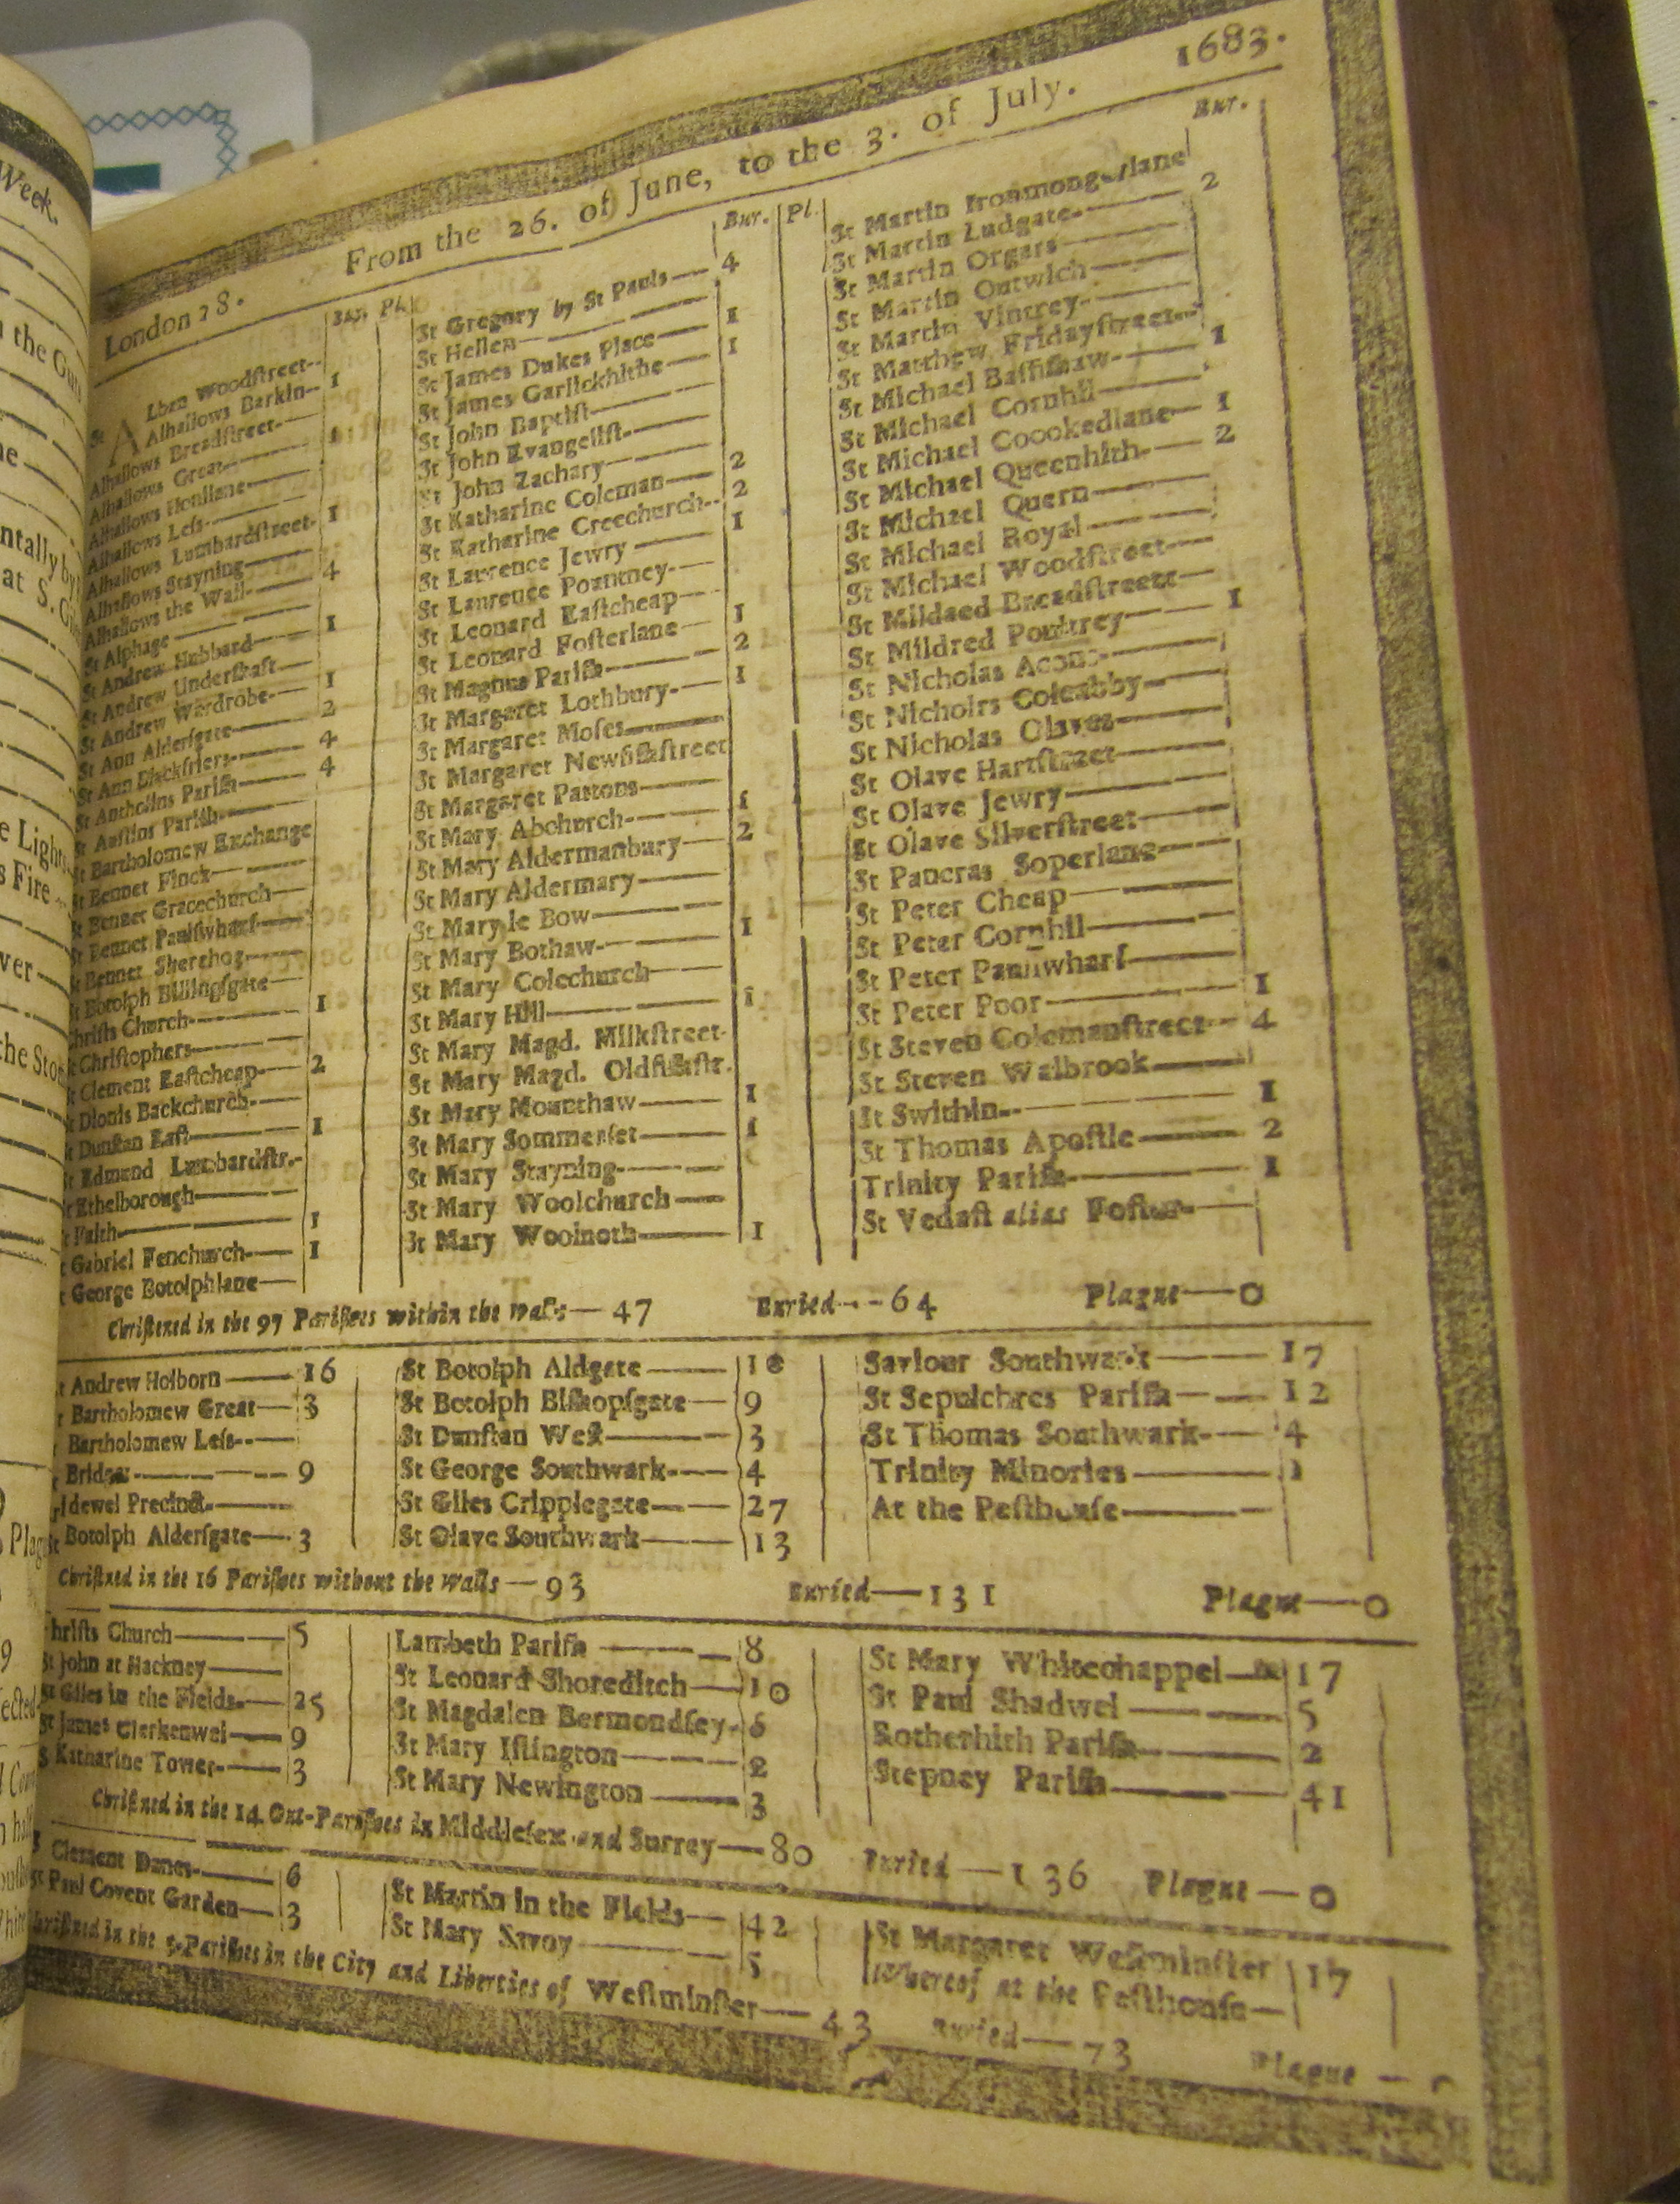 Week.
the Gu
ntally by
at S. Gi
e Light
s Fire
ver
the Sto
Plag
1683.
From the 26. of June, to the 3. of July.
London 28.
Bur. Pl.
St Alban Woodſtreet
Alhallows Barkin 1
Alhallows Breadſtreet
Alhallows Great 1
Alhallows Honilane
Alhallows Leſs
Alhallows Lumbardſtreet 1
Alhallows Stayning
Alhallows the Wall 4
St Alphage
St Andrew Hubbard 1
St Andrew Underſhaft
St Andrew Wardrobe 1
St Ann Alderſgate 2
St Ann Blackfriers 4
St Antholins Pariſh 4
St Auſtins Pariſh
St Bartholomew Exchange
St Bennet Finck
St Bennet Gracechurch
St Bennet Paulſwharf
St Bennet Sherehog
St Botolph Billingſgate
Chriſts Church 1
St Chriſtophers
St Clement Eaſtcheap 2
St Dionis Backchurch
St Dunſtan Eaſt 1
St Edmund Lumbardſtr.
St Ethelborough
St Faith 1
St Gabriel Fenchurch 1
St George Botolphlane
Bur. Pl.
St Gregory by St Pauls 4
St Hellen
St James Dukes Place 1
St James Garlickhithe 1
St John Baptiſt
St John Evangeliſt
St John Zachary
St Katharine Coleman 2
St Katharine Creechurch 2
St Lawrence Jewry 1
St Laurence Pountney
St Leonard Eaſtcheap
St Leonard Foſterlane 1
St Magnus Pariſh 2
St Margaret Lothbury 1
St Margaret Moſes
St Margaret Newfiſhſtreet
St Margaret Pattons
St Mary Abchurch 1
St Mary Aldermanbury 2
St Mary Aldermary
St Mary le Bow
St Mary Bothaw 1
St Mary Colechurch
St Mary Hill 1
St Mary Magd. Milkſtreet
St Mary Magd. Oldfiſhſtr.
St Mary Mounthaw 1
St Mary Sommerſet 1
St Mary Stayning
St Mary Woolchurch
St Mary Woolnoth 1
Bur.
St Martin Ironmongerlane
St Martin Ludgate 2
St Martin Orgars
St Martin Outwich
St Martin Vintrey
St Matthew Fridayſtreet
St Michael Baſſiſhaw 1
St Michael Cornhil
St Michael Coookedlane 1
St Michael Queenhith 2
St Michael Quern
St Michael Royal
St Michael Woodſtreet
St Mildaed Breadſtreet
St Mildred Poultrey 1
St Nicholas Acons
St Nicholrs Coleabby
St Nicholas Olaves
St Olave Hartſtreet
St Olave Jewry
St Olave Silverſtreet
St Pancras Soperlane
St Peter Cheap
St Peter Cornhil
St Peter Paulſwharf
St Peter Poor 1
St Steven Colemanſtreet 4
St Steven Walbrook
St Swithin 1
St Thomas Apoſtle 2
Trinity Pariſh 1
St Vedaſt alias Foſter
Chriſtened in the 97 Pariſhes within the walls — 47 Buried — 64 Plague — 0
St Andrew Holborn 16
St Bartholomew Great 3
Bartholomew Leſs
Bridget 9
Bridewel Precinct
St Botolph Alderſgate 3
St Botolph Aldgate 18
St Botolph Biſhopſgate 9
St Dunſtan Weſt 3
St George Southwark 4
St Giles Cripplegate 27
St Olave Southwark 13
Saviour Southwark 17
St Sepulchres Pariſh 12
St Thomas Southwark 4
Trinity Minories
At the Peſthouſe
Chriſtned in the 16 Pariſhes without the Walls — 93 Buried — 131 Plague — 0
Chriſts Church 5
St John at Hackney
St Giles in the Fields 25
St James Clerkenwel 9
S Katharine Tower 3
Lambeth Pariſh 8
St Leonard Shoreditch 10
St Magdalen Bermondſey 6
St Mary Iſlington 2
St Mary Newington 3
St Mary Whitechappel 17
St Paul Shadwel 5
Rotherhith Pariſh 2
Stepney Pariſh 41
Chriſtned in the 14 Out-Pariſhes in Middleſex and Surrey — 80 Buried — 136 Plague — 0
Clement Danes 6
St Paul Covent Garden 3
St Martin in the Fields 42
St Mary Savoy 5
St Margaret Weſtminſter 17
Whereof at the Peſthouſe
Chriſtned in the 5 Pariſhes in the City and Liberties of Weſtminſter — 43 Buried — 73 Plague —